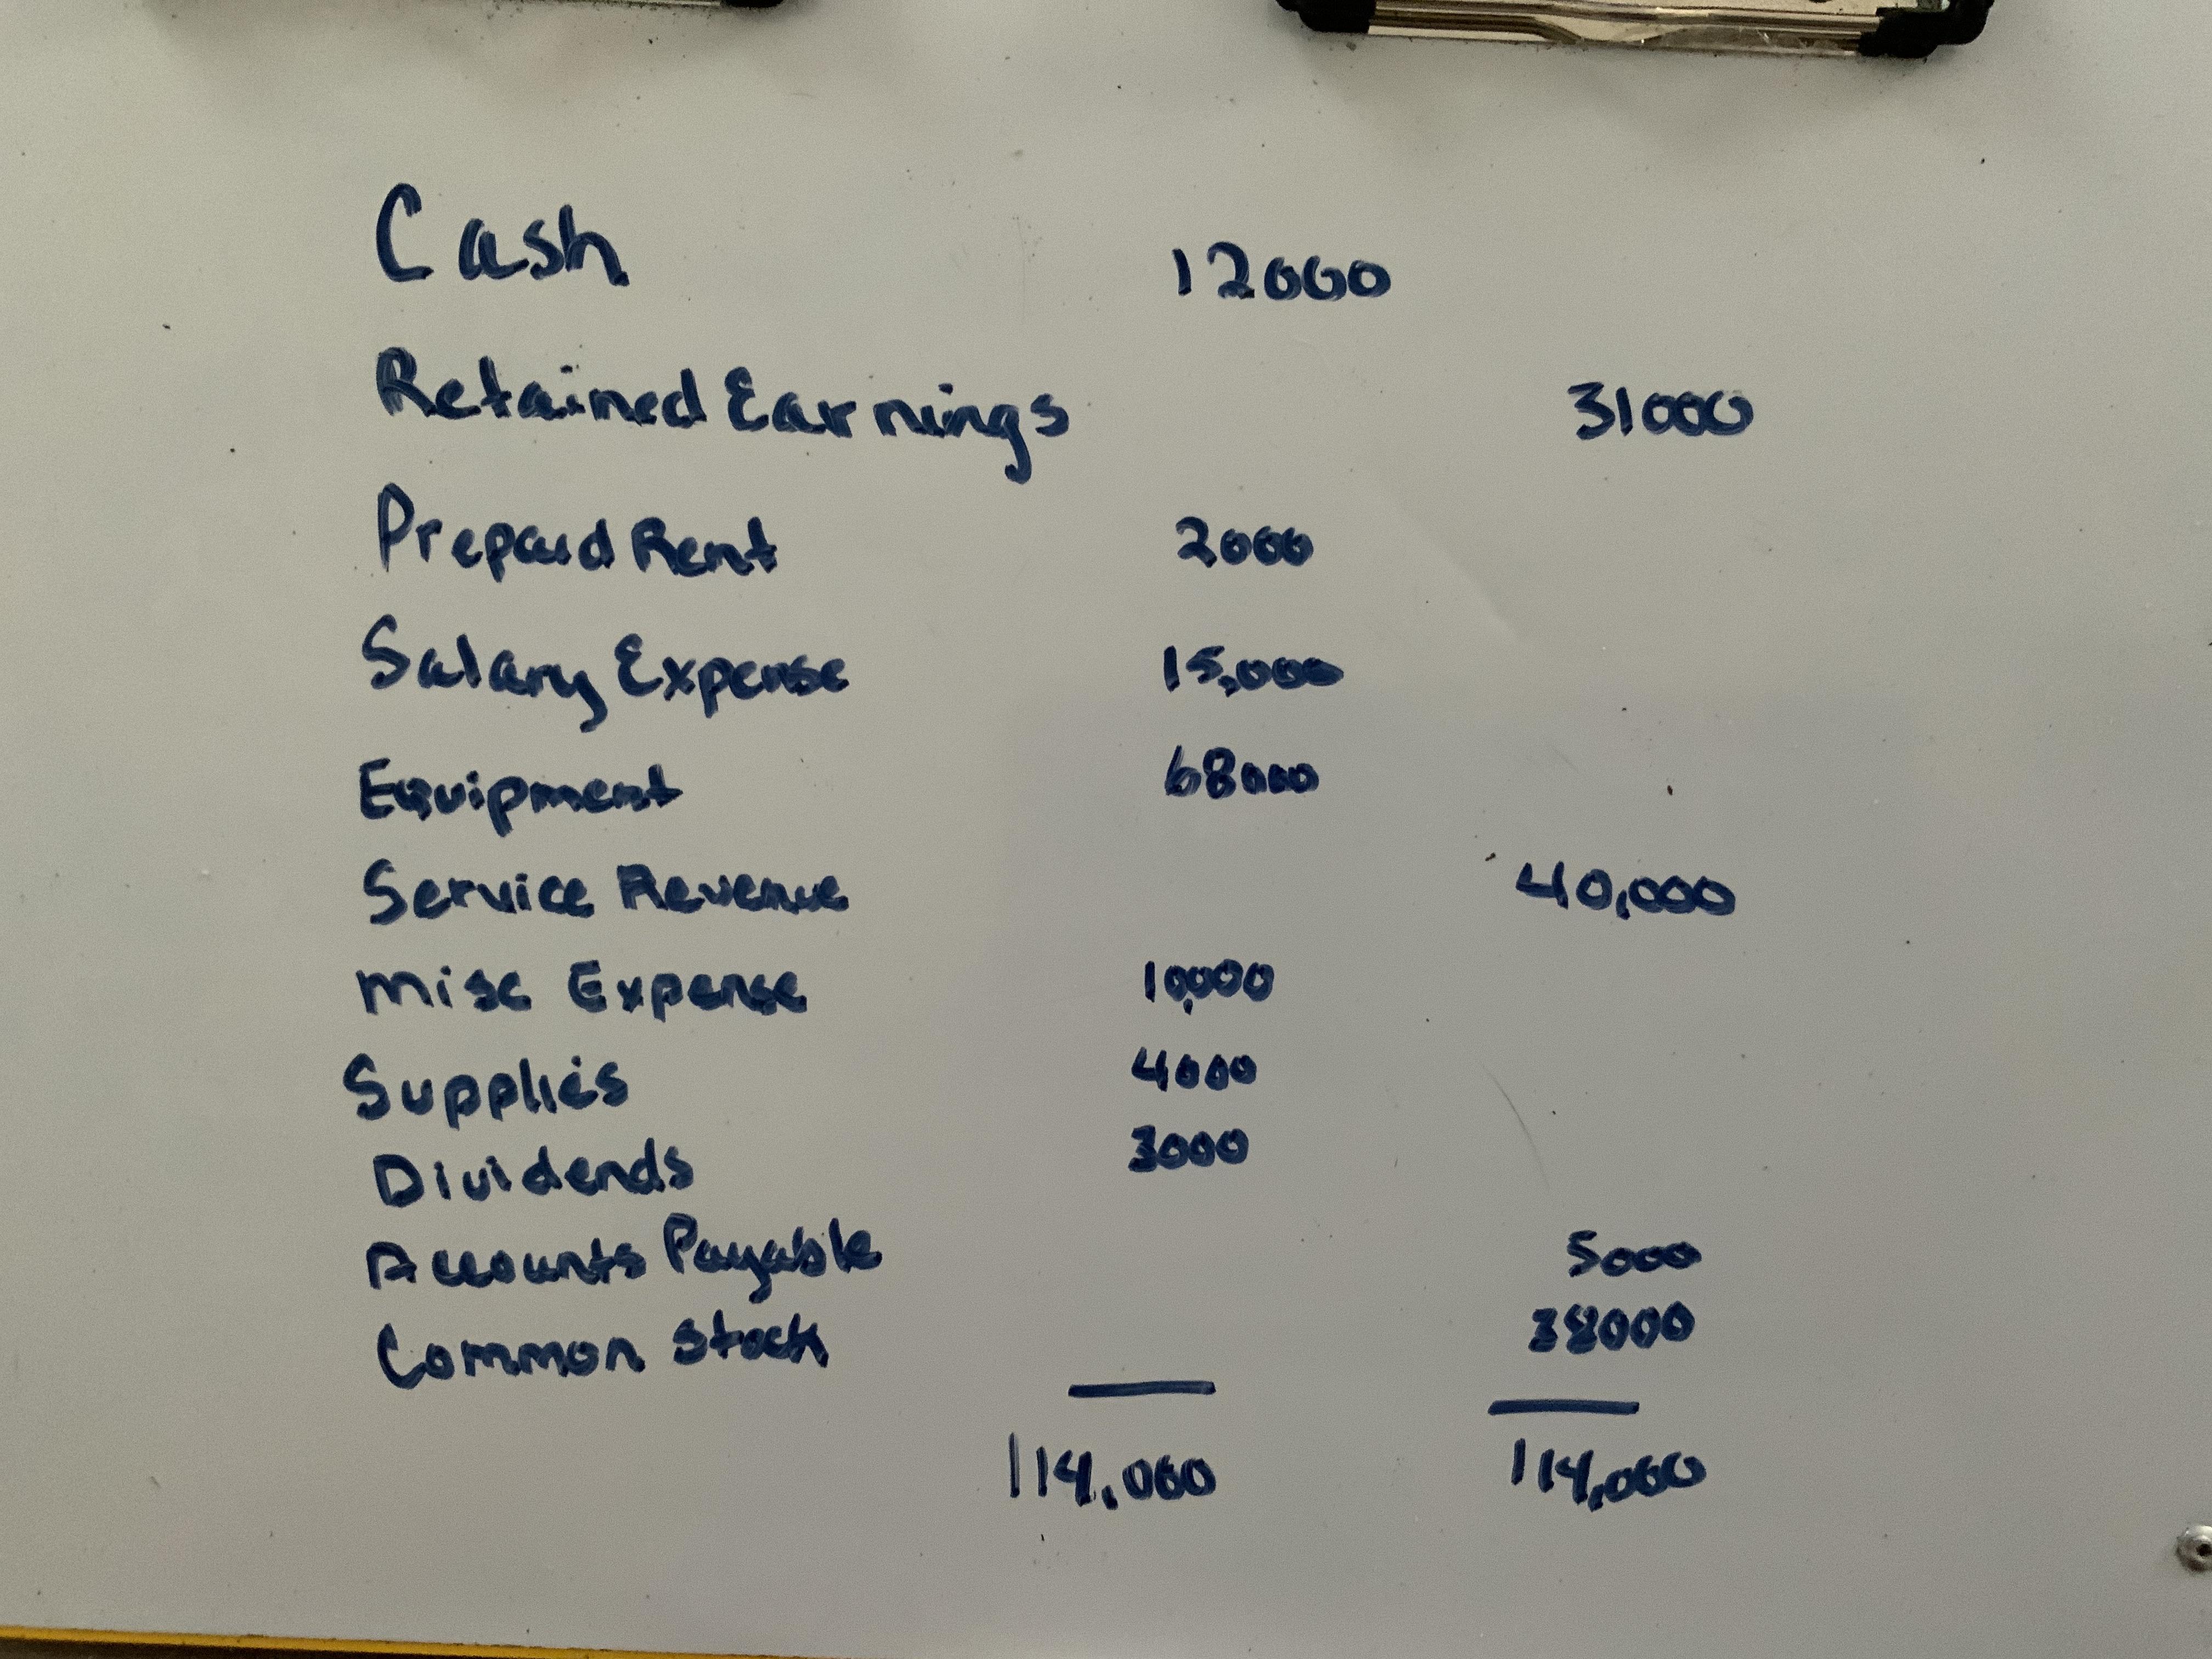 Cash 12000
Retained Earnings 31000
Prepaid Rent 2000
Salary Expense 15,000
Equipment 68000
Service Revenue 40,000
Misc Expense 10,000
Supplies 4000
Dividends 3000
Accounts Payable 5000
Common Stock 38000
114,000 114,000